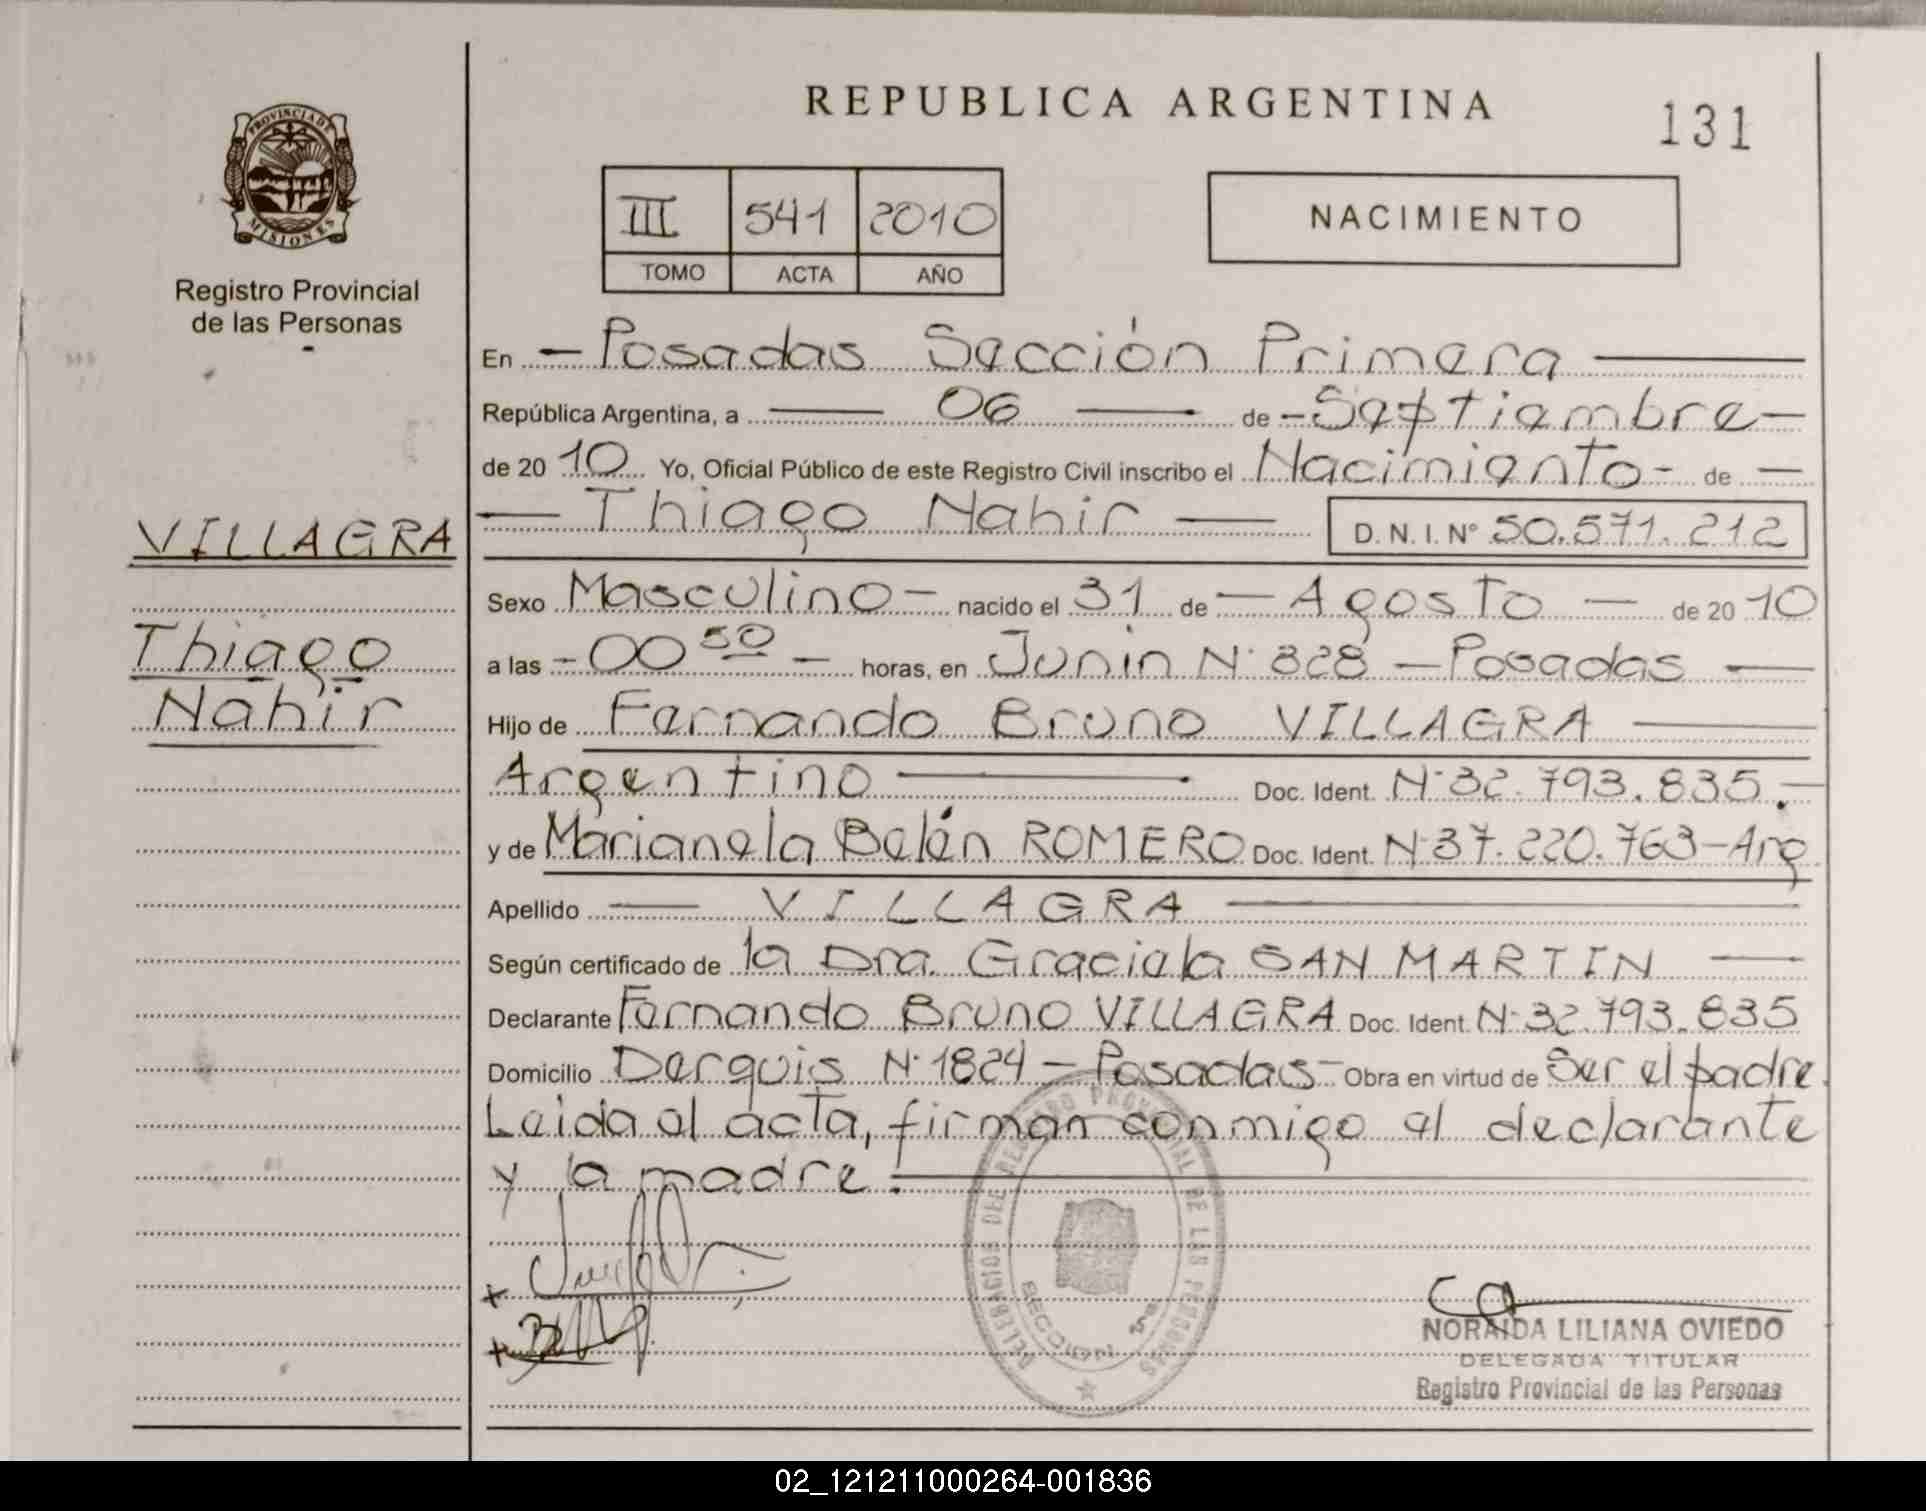 REPUBLICA ARGENTINA
131
PROVINCIA DE MISIONES
Registro Provincial
de las Personas
III 541 2010
TOMO ACTA AÑO
NACIMIENTO
En Posadas Sección Primera
República Argentina, a 06 de Septiembre
de 20 10 Yo, Oficial Público de este Registro Civil inscribo el Nacimiento de
Thiago Nahir D. N. I. Nº 50.571.212
VILLAGRA
Thiago
Nahir
Sexo Masculino nacido el 31 de Agosto de 20 10
a las 00 50 horas, en Junin N° 828 - Posadas
Hijo de Fernando Bruno VILLAGRA
Argentino Doc. Ident. N° 32.793.835.-
y de Marianela Belén ROMERO Doc. Ident. N° 37.220.763-Arg
Apellido VILLAGRA
Según certificado de la Dra. Graciela SAN MARTIN
Declarante Fernando Bruno VILLAGRA Doc. Ident. N° 32.793.835
Domicilio Derquis N° 1824 - Posadas - Obra en virtud de Ser el padre.
Leida el acta, firman conmigo el declarante
y la madre.
DELEGACION DEL REGISTRO PROVINCIAL DE LAS PERSONAS
SECCION 1ª
NORAIDA LILIANA OVIEDO
DELEGADA TITULAR
Registro Provincial de las Personas
02_121211000264-001836